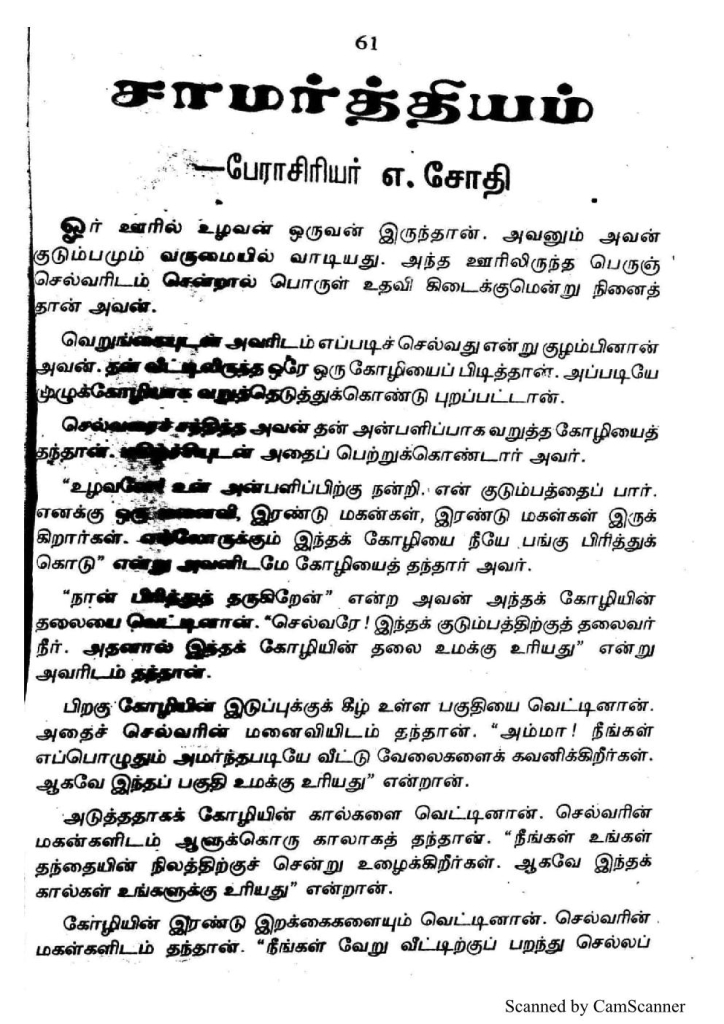 61
சாமர்த்தியம்
—பேராசிரியர் எ. சோதி
ஓர் ஊரில் உழவன் ஒருவன் இருந்தான். அவனும் அவன்
குடும்பமும் வருமையில் வாடியது. அந்த ஊரிலிருந்த பெருஞ்
செல்வரிடம் சென்றால் பொருள் உதவி கிடைக்குமென்று நினைத்
தான் அவன்.
வெறுங்கையுடன் அவரிடம் எப்படிச் செல்வது என்று குழம்பினான்
அவன். தன் வீட்டிலிருந்த ஒரே ஒரு கோழியைப் பிடித்தான். அப்படியே
முழுக்கோழியாக வறுத்தெடுத்துக்கொண்டு புறப்பட்டான்.
செல்வரைச் சந்தித்த அவன் தன் அன்பளிப்பாக வறுத்த கோழியைத்
தந்தான். மகிழ்ச்சியுடன் அதைப் பெற்றுக்கொண்டார் அவர்.
“உழவனே! உன் அன்பளிப்பிற்கு நன்றி. என் குடும்பத்தைப் பார்.
எனக்கு ஒரு மனைவி, இரண்டு மகன்கள், இரண்டு மகள்கள் இருக்
கிறார்கள். எல்லோருக்கும் இந்தக் கோழியை நீயே பங்கு பிரித்துக்
கொடு” என்று அவனிடமே கோழியைத் தந்தார் அவர்.
“நான் பிரித்துத் தருகிறேன்” என்ற அவன் அந்தக் கோழியின்
தலையை வெட்டினான். “செல்வரே! இந்தக் குடும்பத்திற்குத் தலைவர்
நீர். அதனால் இந்தக் கோழியின் தலை உமக்கு உரியது” என்று
அவரிடம் தந்தான்.
பிறகு கோழியின் இடுப்புக்குக் கீழ் உள்ள பகுதியை வெட்டினான்.
அதைச் செல்வரின் மனைவியிடம் தந்தான். “அம்மா! நீங்கள்
எப்பொழுதும் அமர்ந்தபடியே வீட்டு வேலைகளைக் கவனிக்கிறீர்கள்.
ஆகவே இந்தப் பகுதி உமக்கு உரியது” என்றான்.
அடுத்ததாகக் கோழியின் கால்களை வெட்டினான். செல்வரின்
மகன்களிடம் ஆளுக்கொரு காலாகத் தந்தான். “நீங்கள் உங்கள்
தந்தையின் நிலத்திற்குச் சென்று உழைக்கிறீர்கள். ஆகவே இந்தக்
கால்கள் உங்களுக்கு உரியது” என்றான்.
கோழியின் இரண்டு இறக்கைகளையும் வெட்டினான். செல்வரின்
மகள்களிடம் தந்தான். “நீங்கள் வேறு வீட்டிற்குப் பறந்து செல்லப்
Scanned by CamScanner